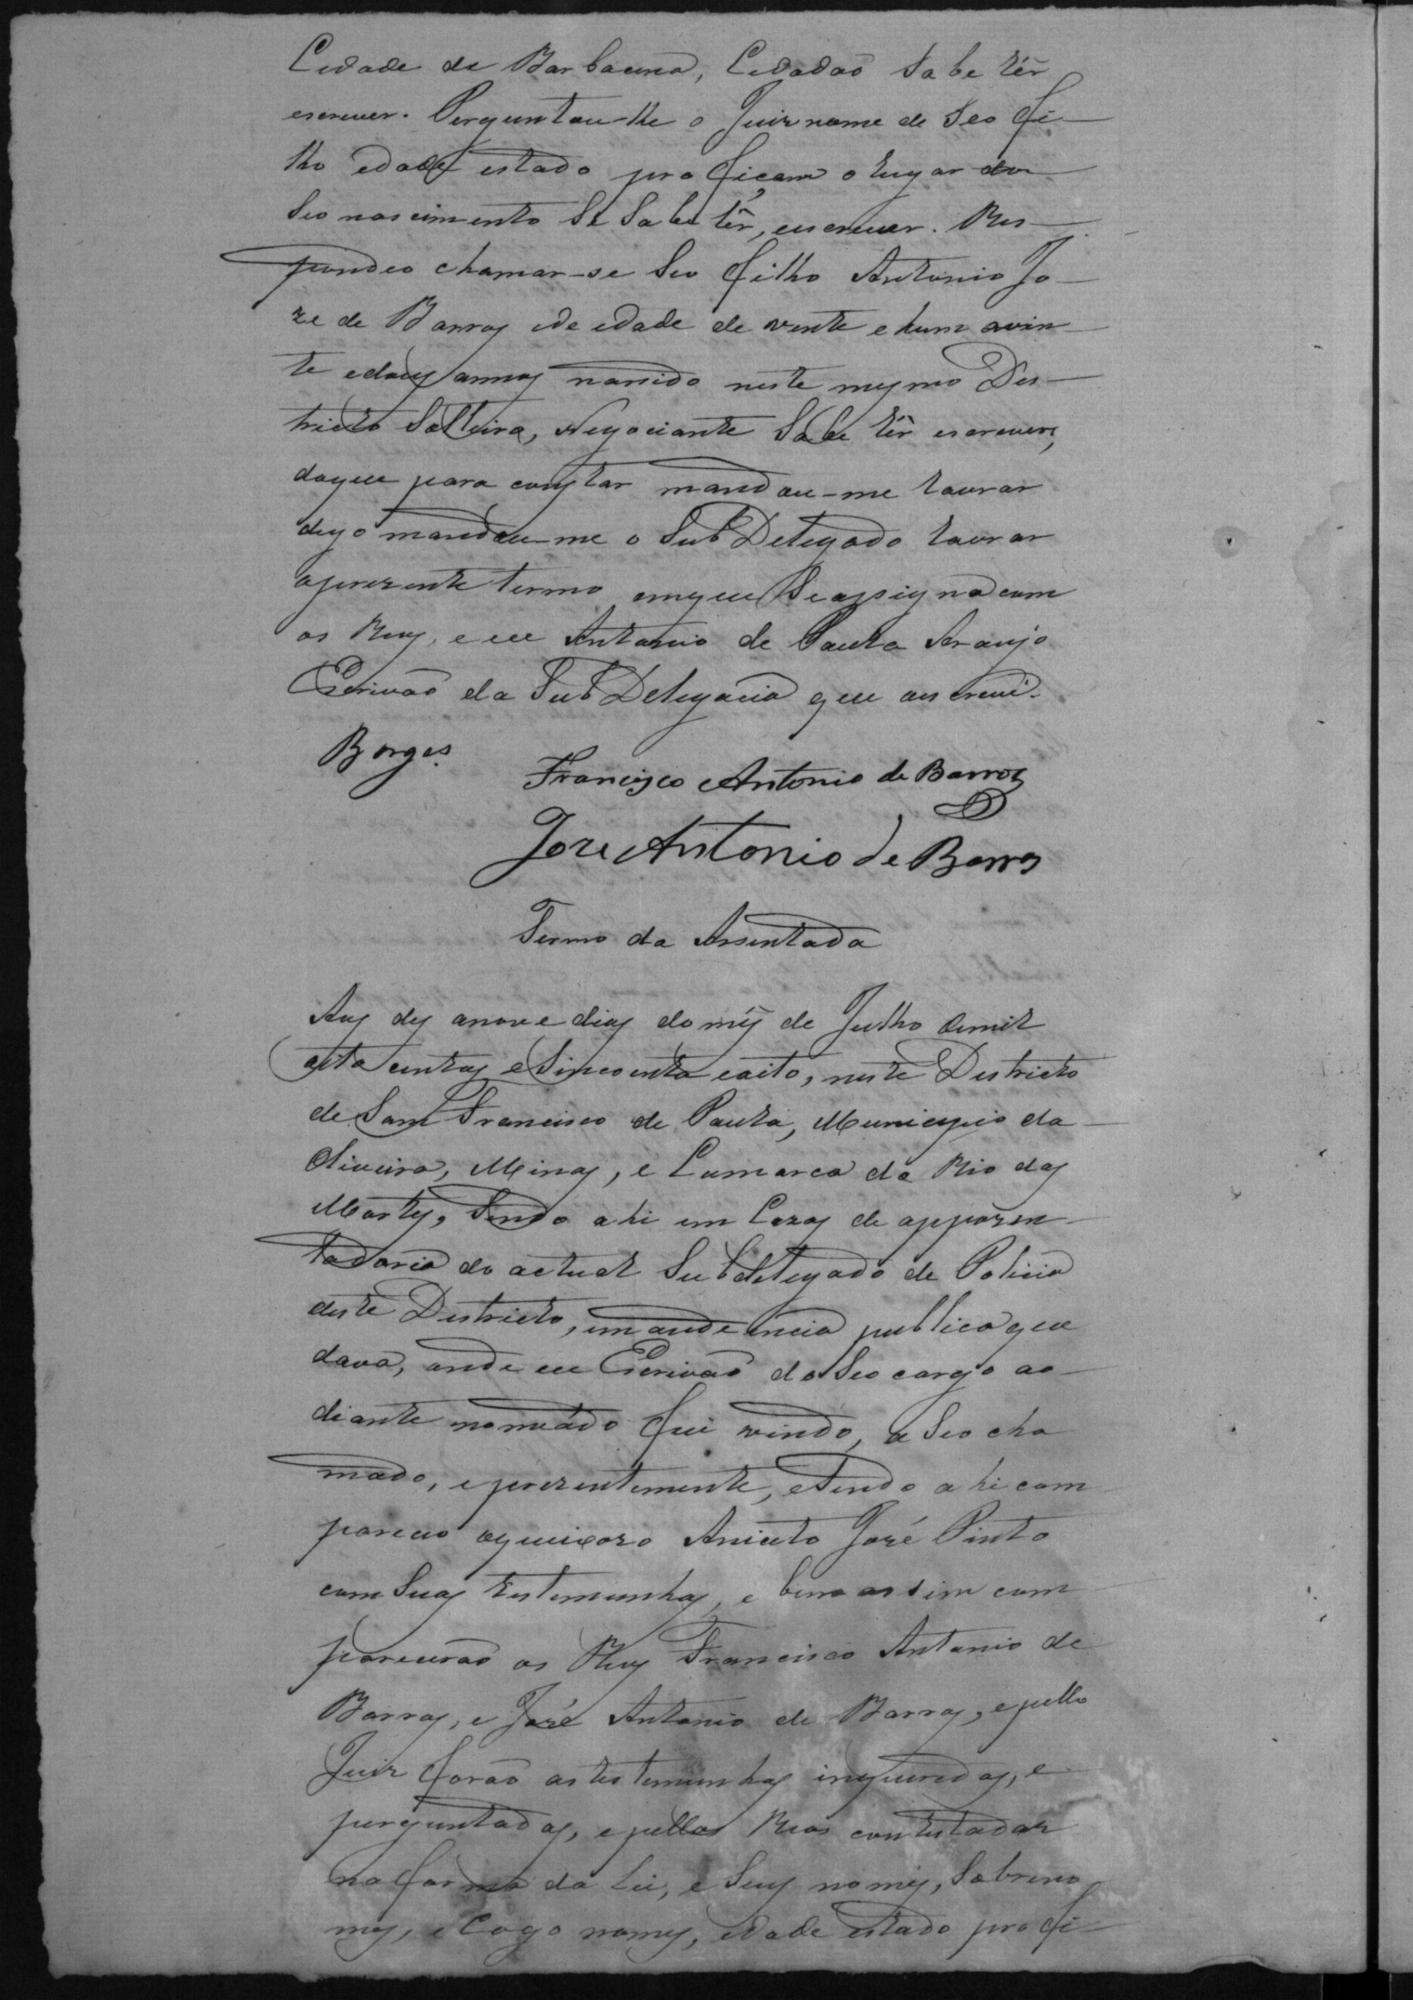 Cidade de Barbacena, Cidadaõ Sabe lêr
escrever. Perguntou-lhe o Juiz nome de Seo fi-
lho edade estado proficam o lugar do
Seo nascimento Se Sabe lêr, escrever. Res-
pondeo chamar-se Seo filho Antonio Jo-
ze de Barros ede edade de vinte e hum avin-
te edous annos nascido neste mesmo Dis-
tricto Solteiro, Negociante Sabe lêr escrever,
doque para constar mandou-me lavrar
digo mandou-me o SubDelegado lavrar
aprezente termo emque Seassigna com
os Reos, e eu Antonio de Paula Araujo
Escrivaõ da SubDelegacia que escrevi.
Borges.
Francisco Antonio de Barros
Joze Antonio de Barros
Termo da Assentada
Aos des anove dias do mês de Julho demil
oito centos e Sincoenta eoito, neste Districto
de Sam Francisco de Paula, Municipio da
Oliveira, Minas, e Comarca do Rio das
Mortes, Sendo ahi em Cazas de appozen-
tadoria do actual Subdelegado de Policia
deste Districto, em audeencia publica que
dava, onde eu Escrivaõ do Seo cargo ao
diante nomeado fui vindo, a Seo cha
mado, e prezentemente, eSendo ahi com
pareceo oqueixozo Aniceto José Pinto
com Suas testemunhas, e bem assim com
pareceraõ os Reos Francisco Antonio de
Barros, e José Antonio de Barros, e pello
Juiz foraõ as testemunhas inqueridas, e
perguntadas, e pellos Reos contestadas
na forma da Lei, e Seus nomes, Sobreno
mes, e Cogo nomes, edade estado profi-